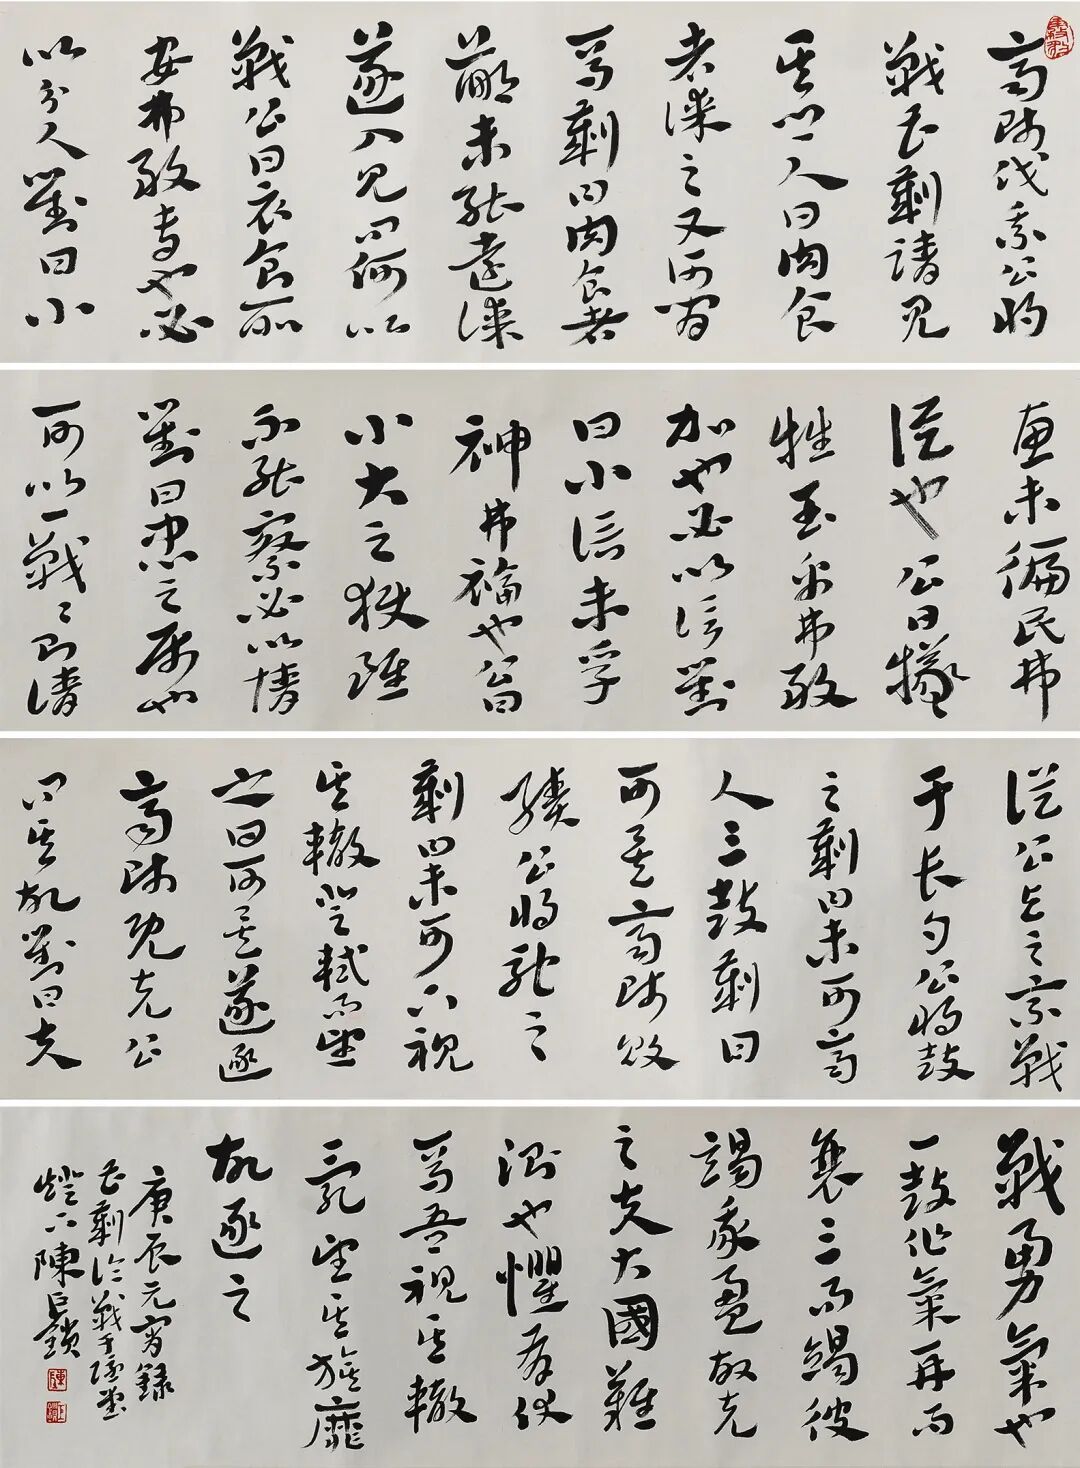 齊師伐我公將
戰曹劌請見
其鄉人曰肉食
者謀之又何間
焉劌曰肉食者
鄙未能遠謀
遂入見問何以
戰公曰衣食所
安弗敢專也必
以分人對曰小
惠未徧民弗
從也公曰犧
牲玉帛弗敢
加也必以信對
曰小信未孚
神弗福也公曰
小大之獄雖
不能察必以情
對曰忠之屬也
可以一戰戰則請
從公與之乘戰
于長勺公將鼓
之劌曰未可齊
人三鼓劌曰
可矣齊師敗
績公將馳之
劌曰未可下視
其轍登軾而望
之曰可矣遂逐
齊師既克公
問其故對曰夫
戰勇氣也
一鼓作氣再而
衰三而竭彼
竭我盈故克
之夫大國難
測也懼有伏
焉吾視其轍
亂望其旗靡
故逐之
庚辰元宵錄
曹劌論戰于隱堂
燈下陳巨鎖